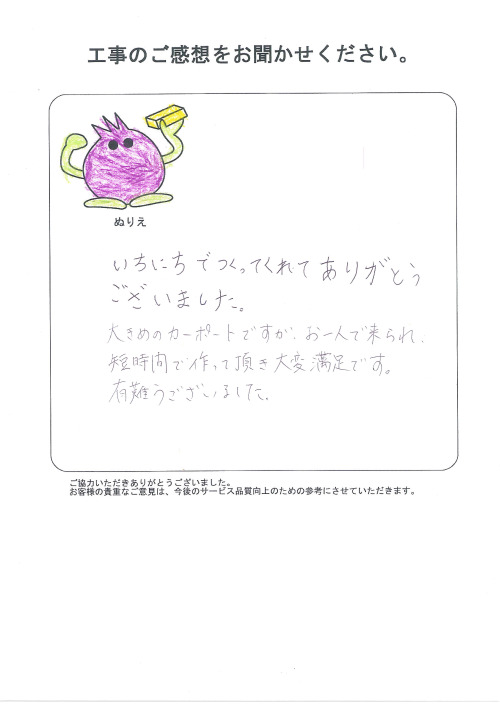 工事のご感想をお聞かせください。
ぬりえ
いちにちでつくってくれてありがとう
ございました。
大きめのカーポートですが、お一人で来られ、
短時間で作って頂き大変満足です。
有難うございました。
ご協力いただきありがとうございました。
お客様の貴重なご意見は、今後のサービス品質向上のための参考にさせていただきます。